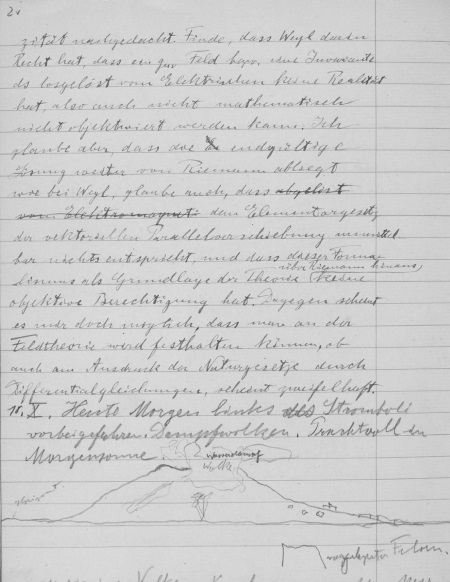 2.
zität nachgedacht. Finde, dass Weyl darin
Recht hat, dass ein gμν Feld bezw. eine Invariante
ds losgelöst vom Elektrischen keine Realität
hat, also auch nicht mathematisch
nicht objektiviert werden kann. Ich
glaube aber, dass die endgültige
Lösung weiter von Riemann abliegt
wie bei Weyl, glaube auch, dass abgelöst
vom Elektromagneti dem Elementargesetz
der vektoriellen Parallelverschiebung unmittel
bar nichts entspricht, und dass dieser Forma-
über Riemann hinaus,
lismus als Grundlage der Theorie keine
objektive Berechtigung hat. Dagegen scheint
es mir doch möglich, dass man an der
Feldtheorie wird festhalten können, ob
auch am Ausdruck der Naturgesetze durch
Differentialgleichungen, scheint zweifelhaft.
10. X. Heute Morgen links des Stromboli
vorbeigefahren. Dampfwolken. Prachtvoll in
Morgensonne.
Wasserdampf
Wolke
Horizont